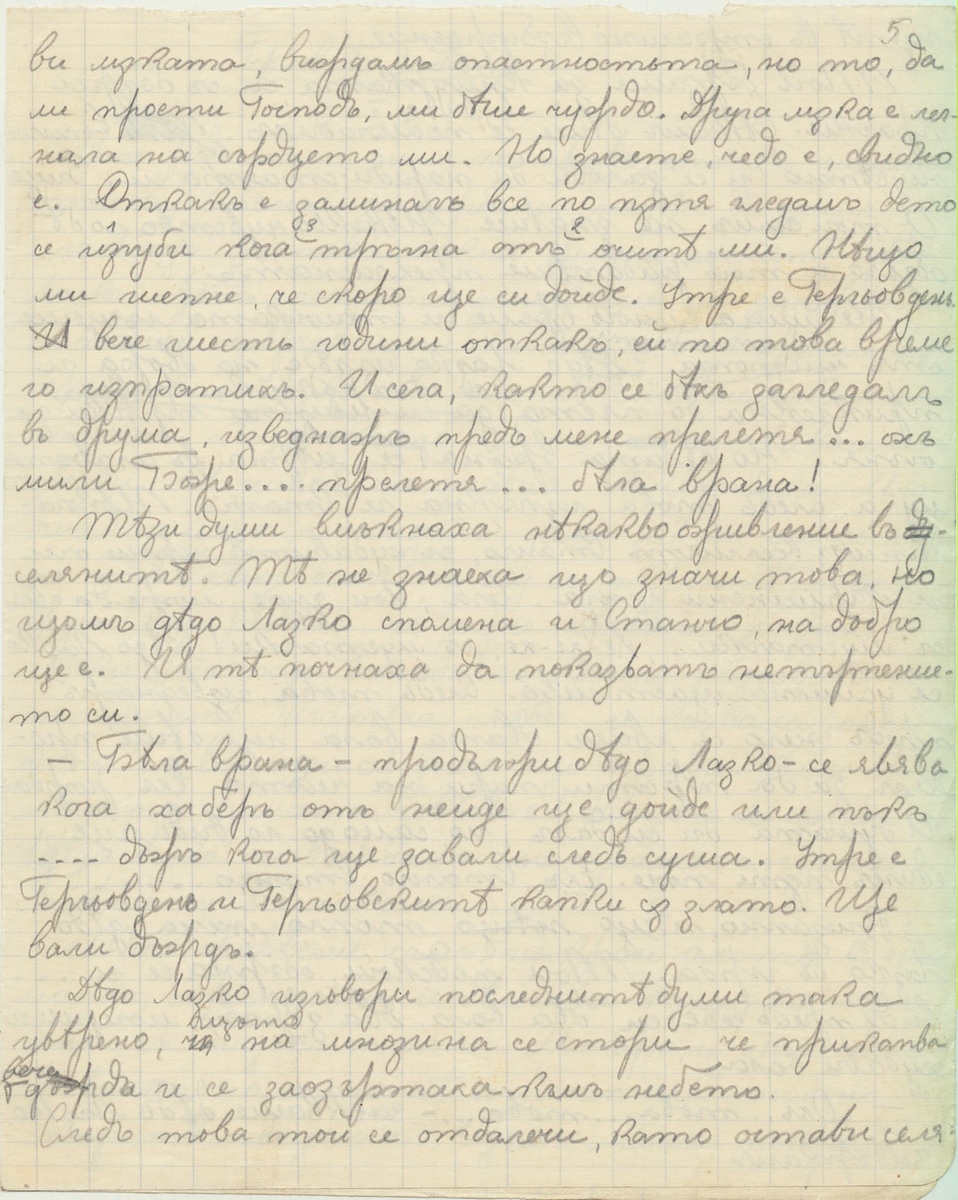 5
ви мѫката, виждамъ опастностьта, но то, да
ми прости Господь, ми бѣше чуждо. Друга мѫка е лег-
нала на сърдцето ми. Но знаете, чедо е, свидно
е. Откакъ е заминалъ все по пѫтя гледамъ дето
се изгуби кога тръгна отъ очитѣ ми. Нѣщо
ми шепне, че скоро ще си дойде. Утре е Гергьовдень.
вече шесть години откакъ, ей по това време
го изпратихъ. И сега, както се бѣхъ загледалъ
въ друма, изведнажъ предъ мене прелетя... охъ
мили Боже.... прелетя... бѣла врана!
Тѣзи думи вмъкнаха нѣкакво оживление въ
селянитѣ. Тѣ не знаеха що значи това, но
щомъ дѣдо Лазко спомена и Станчо, на добро
ще е. И тѣ почнаха да показватъ нетърпение-
то си.
— Бѣла врана – продължи дѣдо Лазко – се явява
кога хаберъ отъ нейде ще дойде или пъкъ
.... дъжъ кога ще завали следъ суша. Утре е
Гергьовдень и Гергьовскитѣ капки сѫ злато. Ще
вали дъждъ.
Дѣдо Лазко изговори последнитѣ думи така
увѣрено, щото на мнозина се стори че прикапва
вече и се заозъртаха къмъ небето.
Следъ това той се отдалечи, като остави селя-